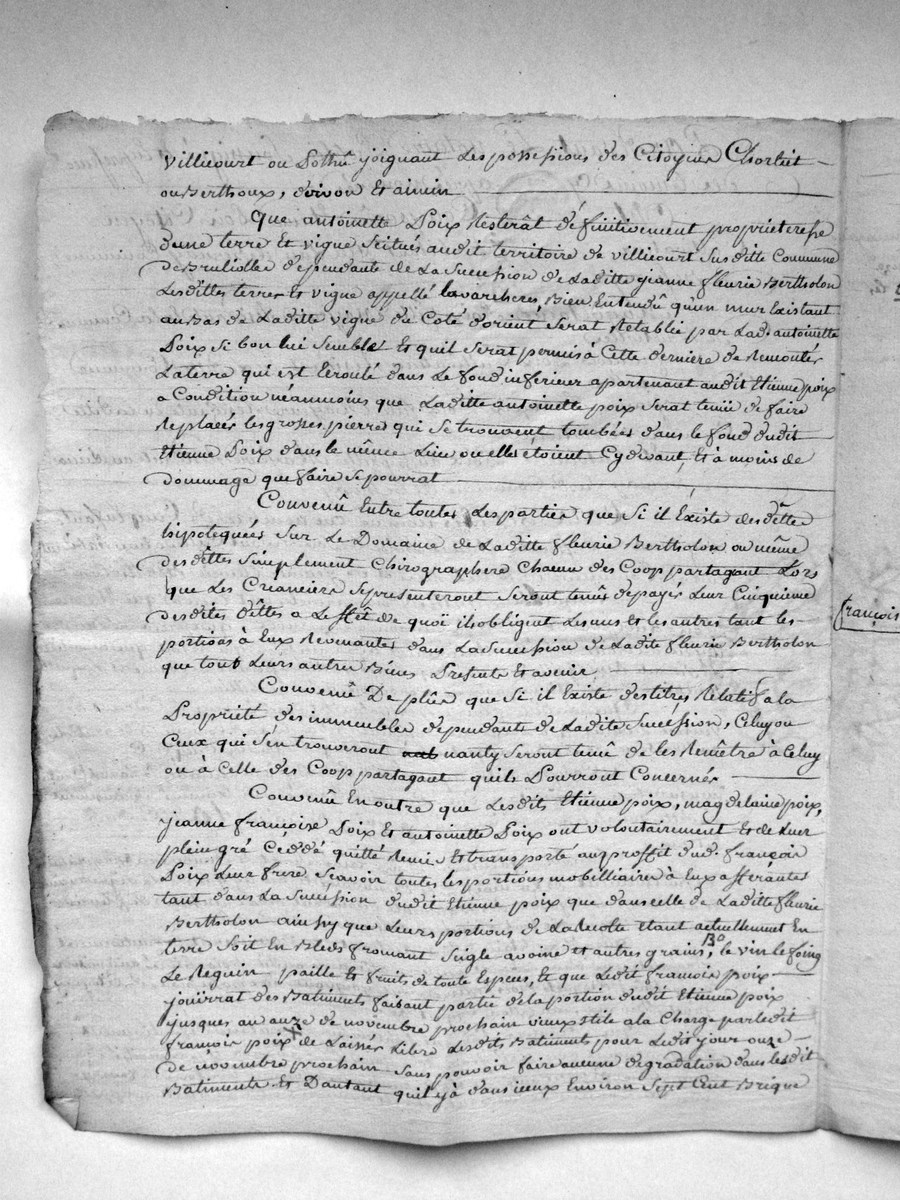 Villicourt ou Lothré joignant Les possessions des Citoyins Chorliet
ou Berthoux, derivon Et aimin
Que antoinette Poix Resterat déffinitivement proprieteresse
d'une terre Et vigne Scitués audit territoire de villicourt Susditte Commune
de Brulliolle dependante de La Sucession de Laditte jeanne fleurie Bertholon
Lesdittes terres Et vigne appellé lavarcheres, Bien Entendû qu'un mur Existant
au Bas de Laditte vigne du Coté d'orient Serat Retablie par Lad. antoinette
Poix Si bon lui Semble Et quil Serat permis à Cette derniere de Remontér
La terre qui est Ecroulé dans Le fond inferieur apartenant audit Etienne poix
a Condition néanmoins que Laditte antoinette poix Serat tenüe de faire
Replacér les grosses pierres qui Se trouvent tombées dans le fond dudit
Etienne Poix dans le même Lieu ou elles étoient Cydevant, Et à moins de
dommage que faire Se pourrat
Convenû Entre toutes Les parties que Si il Existe des dêttes
hipotequées Sur Le Domaine de Laditte fleurie Bertholon ou même
des dêttes Simplement Chirographere Chacun des Coop partagant Lors
que Les Creanciers Se presenteront Seront tenus de payér Leur Cinquieme
desdites dêttes a Leffêt de quoi ils obligent Les uns Et les autres tant les
portions à Eux Revenantes dans La Sucession de Ladite fleurie Bertholon
que tout Leurs autres Biens Presents Et avenir
Convenû De plûs que Si il Existe des titres Relatif a la
Propriété des immeubles dependants de Ladite Sucession, Celuy ou
Ceux qui S'en trouveront nanty Seront tenû de les Remêtre à Celuy
ou à Celle des Coop partagant quils Pourront Concernér
Convenû En outre que Lesdits Etienne poix, magdelaine poix,
jeanne françoise Poix Et antoinette Poix ont volontairement Et de Leur
plein gré Ceddé quitté Remis Et transporté au proffit dud. françois
Poix Leur frere Scavoir toutes les portions mobilliaires à Eux afférantes
tant dans La Sucéssion dudit Etienne poix que dans celle de Laditte fleurie
Bertholon ainsy que Leurs portions de La Recolte Etant actuellement En
terre Soit En Bleds fromant Seigle avoine et autres grains, Bº le vin le foing
Le Reguin paille Et fruits de toute Especes, Et que Ledit francois poix
jouirrat des Batiments faisant partie de la portion dudit Etienne poix
jusques au onze de novembre prochain vieux stile a la Charge par ledit
françois poix de Laissér Libre Lesdits Batiments pour Ledit jour onze
de novembre prochain Sans pouvoir faire aucune degradation dans lesdit
Batiments Et Dautant quil y à dans iceux Environ Sept Cent Brique
françois